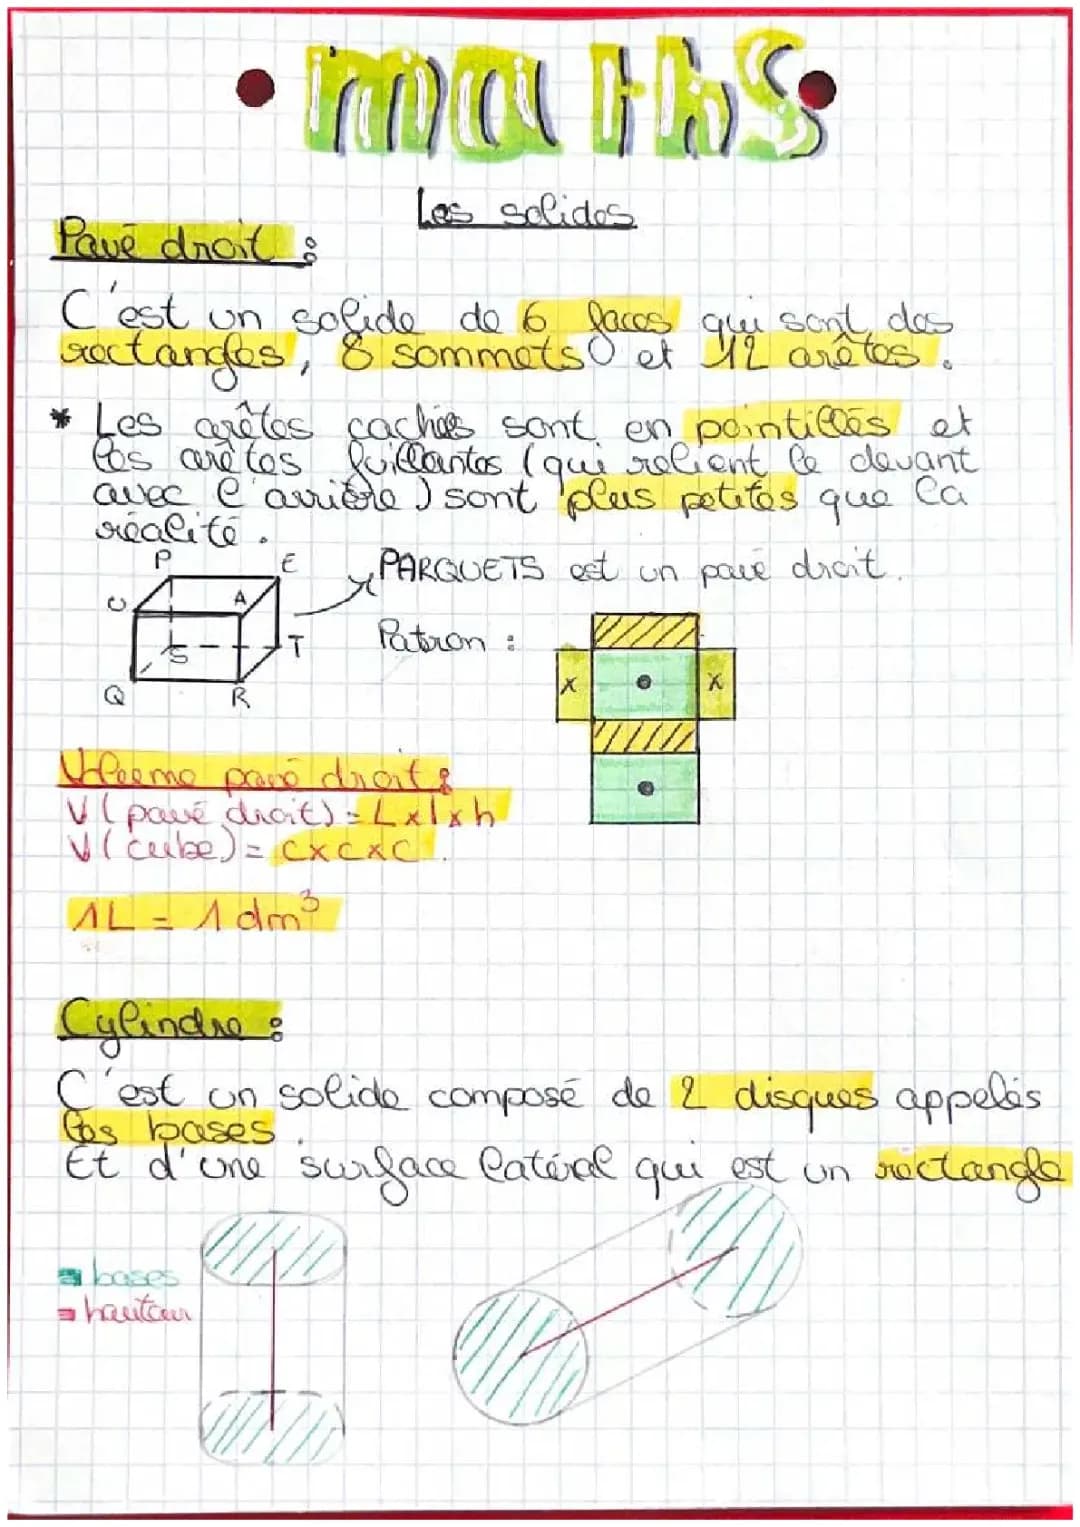 maths
Les solides
Pavé droit :
C'est un solide de 6 faces qui sont des
rectangles, 8 sommets et 12 arêtes.
* Les arêtes cachés sont en pointillés et
les arêtes fuillantes (qui relient le devant
avec l'arrière) sont plus petites que la
réalité.
P E
U A
S T
Q R
PARQUETS est un pavé droit.
Patron :
x x
Volume pavé droit :
V(pavé droit) = L x l x h
V(cube) = c x c x c.
1L = 1 dm³
Cylindre :
C'est un solide composé de 2 disques appelés
les bases.
Et d'une surface latéral qui est un rectangle
bases
hauteur